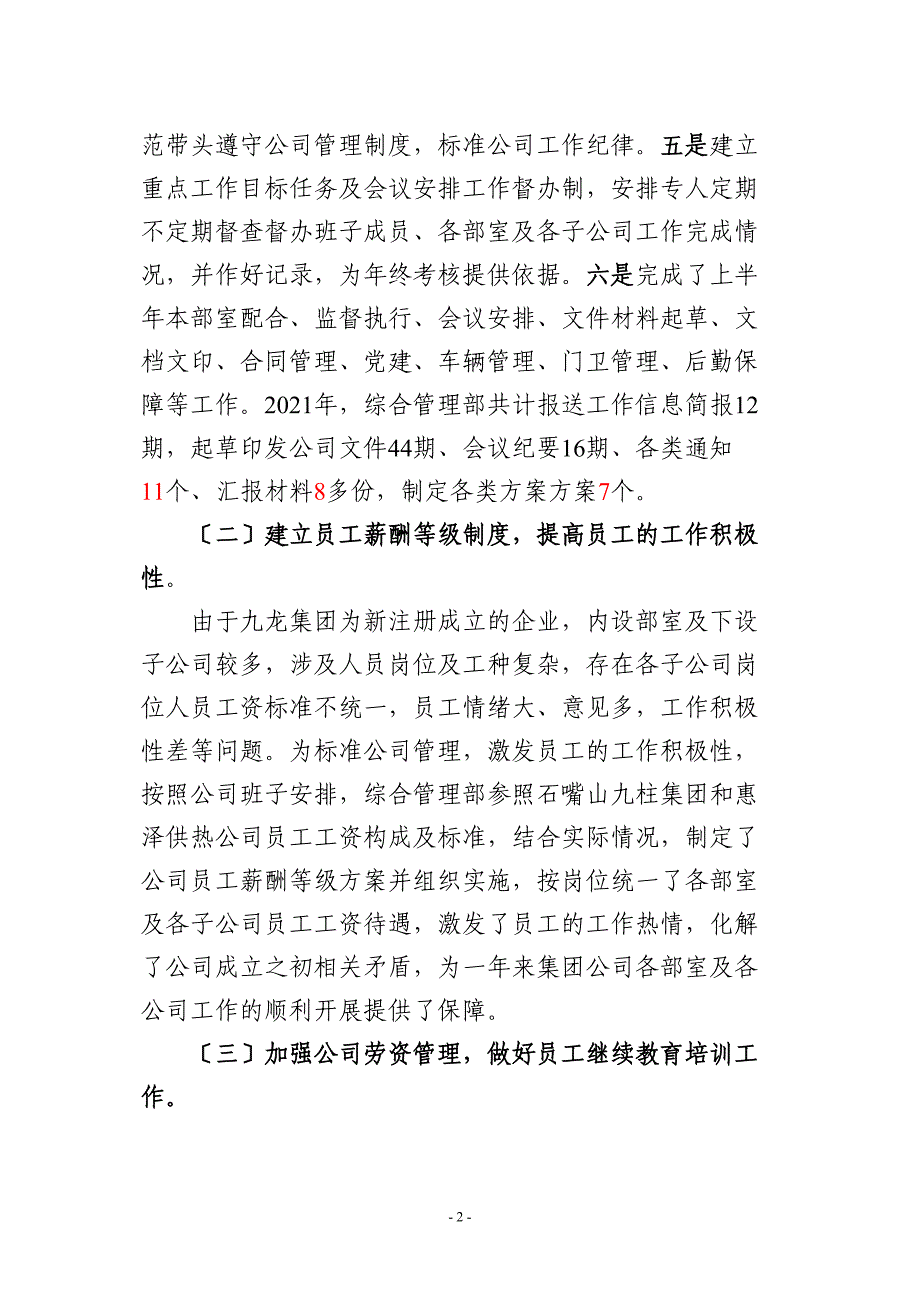 范带头遵守公司管理制度，标准公司工作纪律。五是建立
重点工作目标任务及会议安排工作督办制，安排专人定期
不定期督查督办班子成员、各部室及各子公司工作完成情
况，并作好记录，为年终考核提供依据。六是完成了上半
年本部室配合、监督执行、会议安排、文件材料起草、文
档文印、合同管理、党建、车辆管理、门卫管理、后勤保
障等工作。2021年，综合管理部共计报送工作信息简报12
期，起草印发公司文件44期、会议纪要16期、各类通知
11个、汇报材料8多份，制定各类方案方案7个。
〔二〕建立员工薪酬等级制度，提高员工的工作积极
性。
由于九龙集团为新注册成立的企业，内设部室及下设
子公司较多，涉及人员岗位及工种复杂，存在各子公司岗
位人员工资标准不统一，员工情绪大、意见多，工作积极
性差等问题。为标准公司管理，激发员工的工作积极性，
按照公司班子安排，综合管理部参照石嘴山九柱集团和惠
泽供热公司员工工资构成及标准，结合实际情况，制定了
公司员工薪酬等级方案并组织实施，按岗位统一了各部室
及各子公司员工工资待遇，激发了员工的工作热情，化解
了公司成立之初相关矛盾，为一年来集团公司各部室及各
公司工作的顺利开展提供了保障。
〔三〕加强公司劳资管理，做好员工继续教育培训工
作。
- 2 -